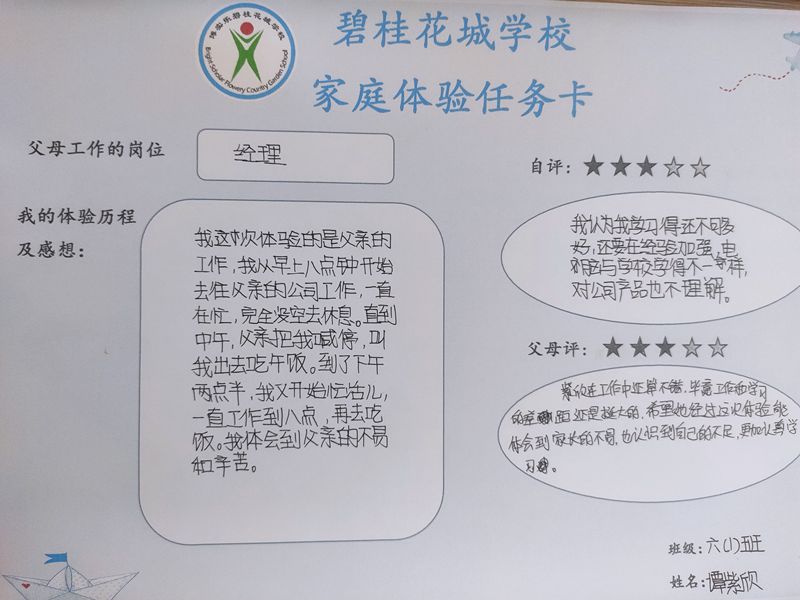 博实乐碧桂花城学校
Bright Scholar Flowery Country Garden School
碧桂花城学校
家庭体验任务卡
父母工作的岗位
经理
我的体验历程
及感想：
我这次体验的是父亲的
工作，我从早上八点钟开始
去往父亲的公司工作，一直
在忙，完全没空去休息。直到
中午，父亲把我喊停，叫
我出去吃午饭。到了下午
两点半，我又开始忙活儿，
一直工作到八点，再去吃
饭。我体会到父亲的不易
和辛苦。
自评：
我认为我学习得还不够
好，还要在经验加强，电
脑与学校学得不一样，
对公司产品也不理解。
父母评：
紫欣在工作中还算不错，毕竟工作和学习
的差距还是挺大的，希望她经过这次体验能
体会到家长的不易，也认识到自己的不足，更加认真学
习。
班级：六(1)班
姓名：谭紫欣